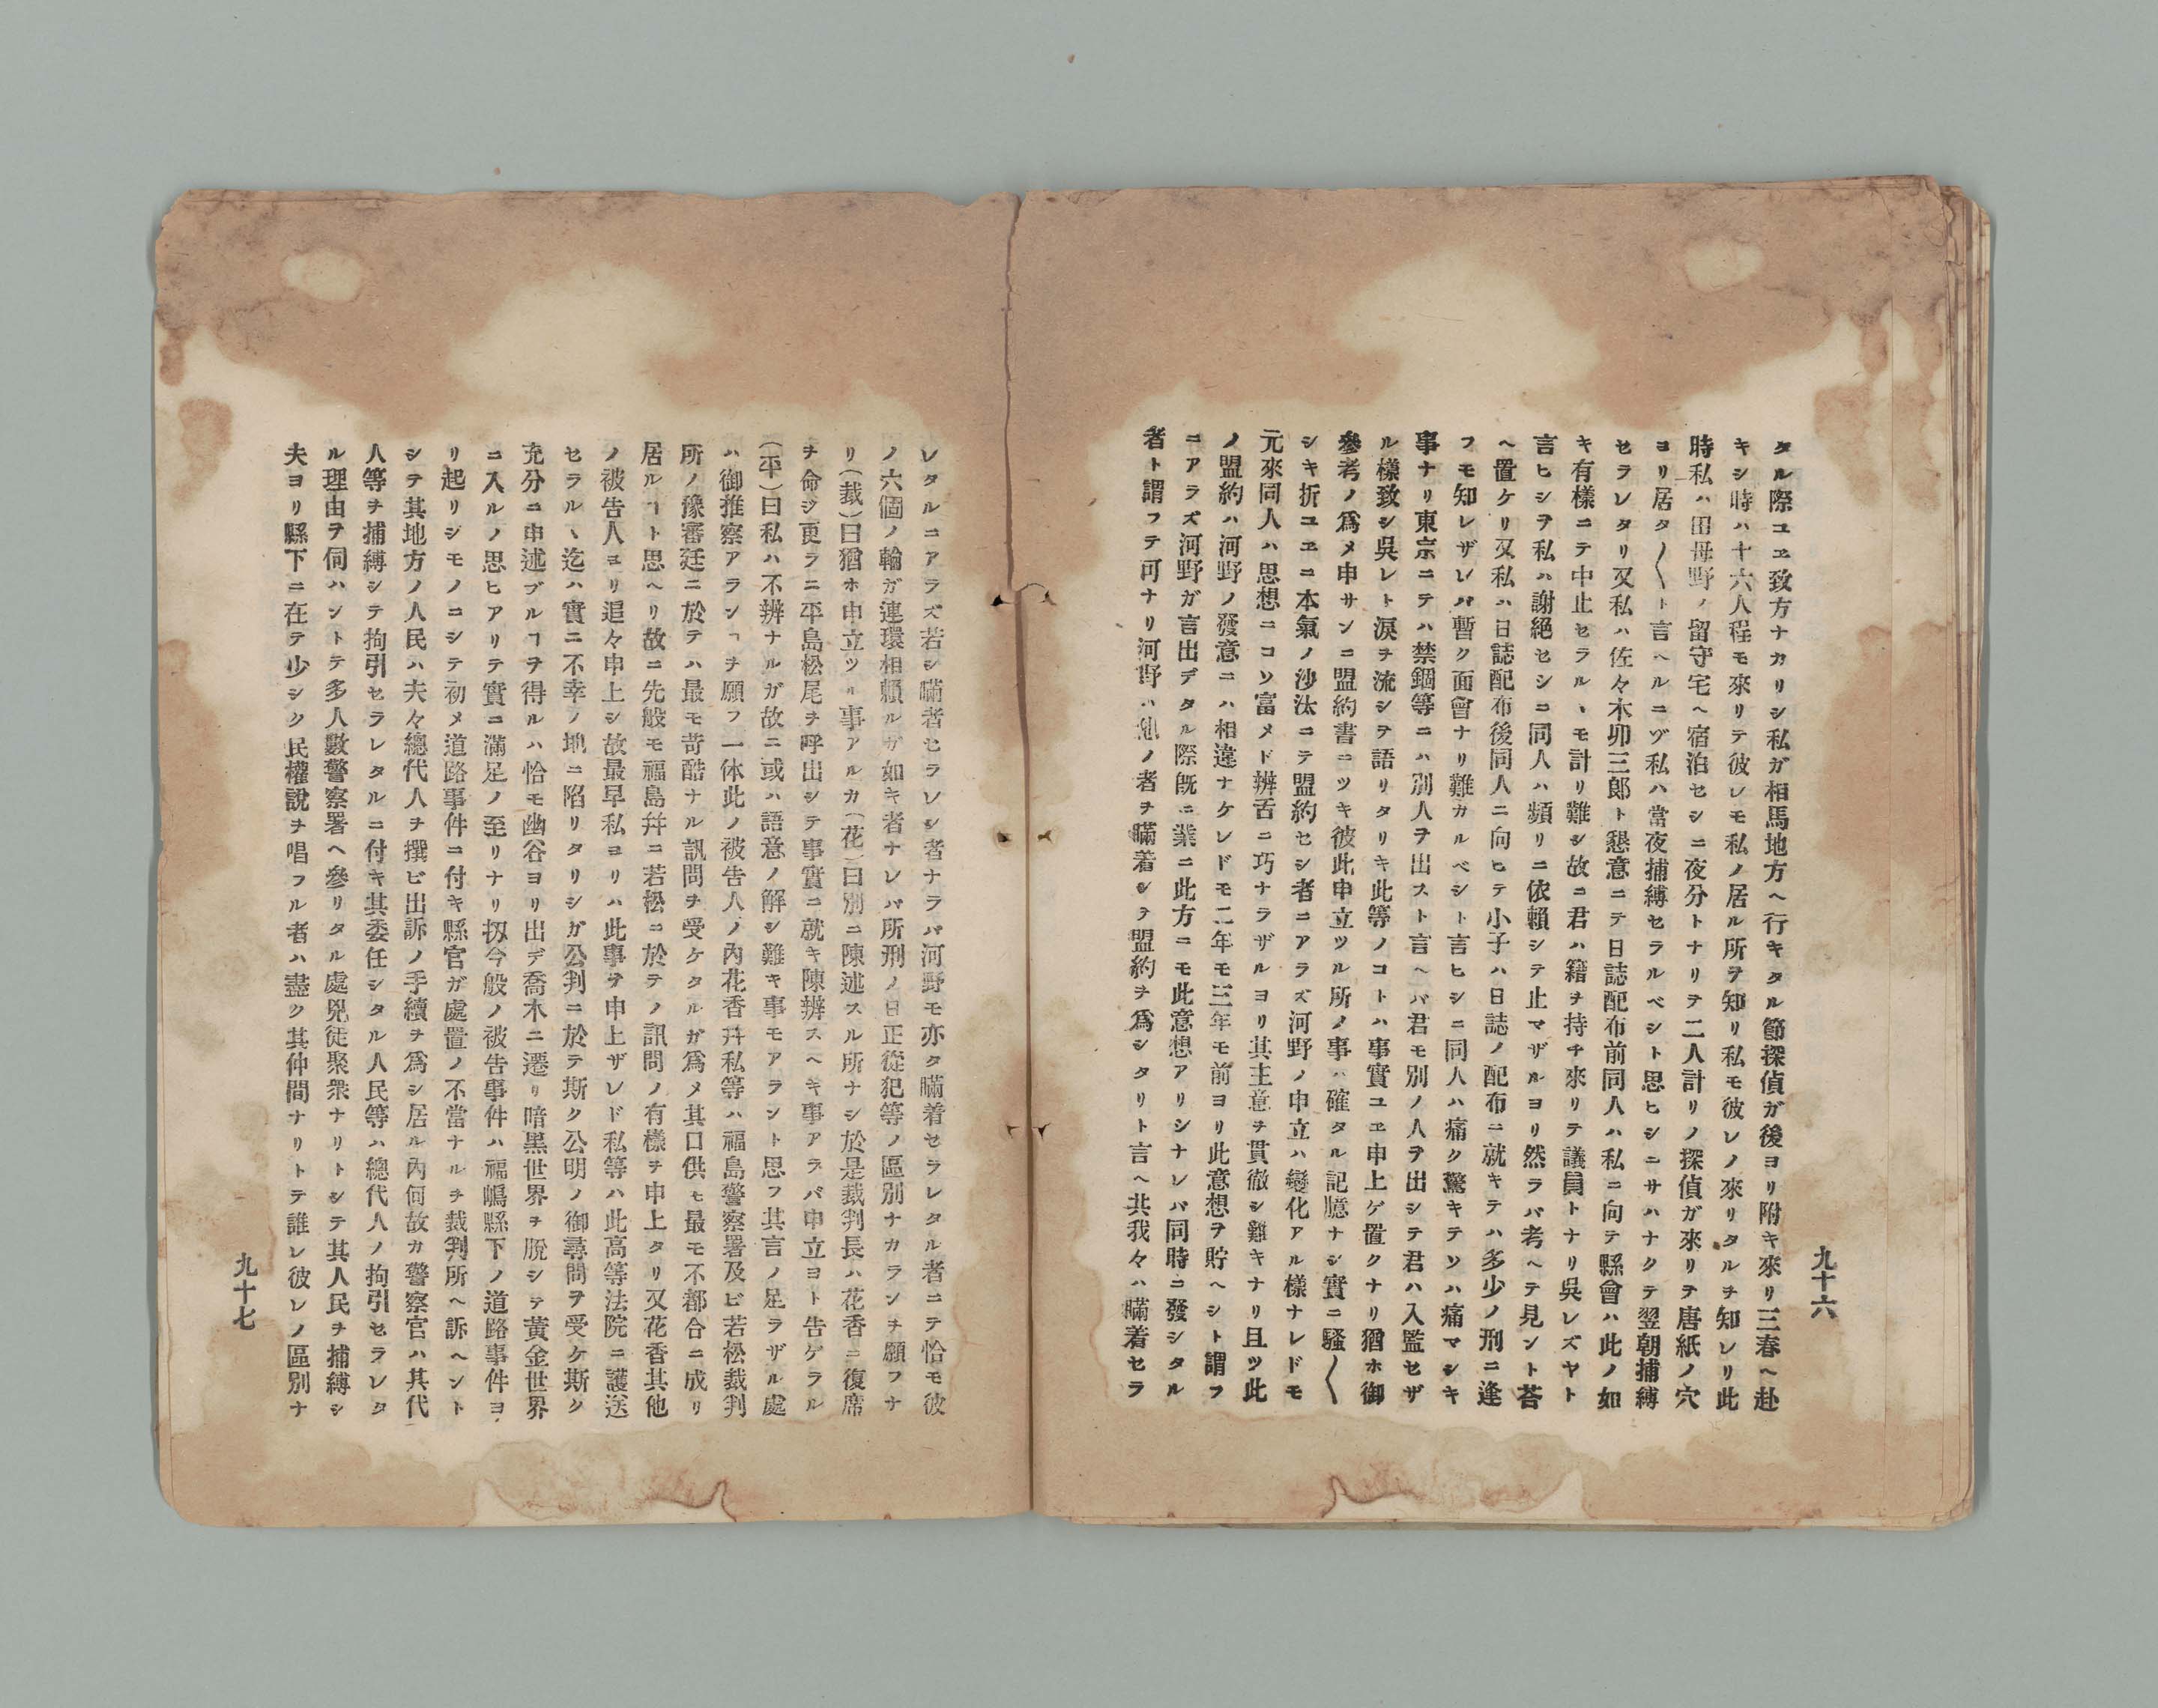 九十六
タル際ユヱ致方ナカリシ私ガ相馬地方ヘ行キタル節探偵ガ後ヨリ附キ來リ三春ヘ赴
キシ時ハ十六人程モ來リテ彼レモ私ノ居ル所ヲ知リ私モ彼レノ來リタルヲ知レリ此
時私ハ田母野ノ留守宅ヘ宿泊セシニ夜分トナリテ二人計リノ探偵ガ來リテ唐紙ノ穴
ヨリ居タ〱ト言ヘルニゾ私ハ當夜捕縛セラルベシト思ヒシニサハナクテ翌朝捕縛
セラレタリ又私ハ佐々木卯三郎ト懇意ニテ日誌配布前同人ハ私ニ向テ縣會ハ此ノ如
キ有樣ニテ中止セラルヽモ計リ難シ故ニ君ハ籍ヲ持チ來リテ議員トナリ吳レズヤト
言ヒシヲ私ハ謝絕セシニ同人ハ頻リニ依賴シテ止マザルヨリ然ラバ考ヘテ見ント荅
ヘ置ケリ又私ハ日誌配布後同人ニ向ヒテ小子ハ日誌ノ配布ニ就キテハ多少ノ刑ニ逢
フモ知レザレバ暫ク面會ナリ難カルベシト言ヒシニ同人ハ痛ク驚キテソハ痛マシキ
事ナリ東京ニテハ禁錮等ニハ別人ヲ出スト言ヘバ君モ別ノ人ヲ出シテ君ハ入監セザ
ル樣致シ吳レト淚ヲ流シテ語リタリキ此等ノコトハ事實ユヱ申上ゲ置クナリ猶ホ御
參考ノ爲メ申サンニ盟約書ニツキ彼此申立ツル所ノ事ハ確タル記臆ナシ實ニ騷〱
シキ折ユヱニ本氣ノ沙汰ニテ盟約セシ者ニアラズ河野ノ申立ハ變化アル樣ナレドモ
元來同人ハ思想ニコソ富メド辨舌ニ巧ナラザルヨリ其主意ヲ貫徹シ難キナリ且ツ此
ノ盟約ハ河野ノ發意ニハ相違ナケレドモ二年モ三年モ前ヨリ此意想ヲ貯ヘシト謂フ
ニアラズ河野ガ言出デタル際旣ニ業ニ此方ニモ此意想アリシナレバ同時ニ發シタル
者ト謂フテ可ナリ河野ハ他ノ者ヲ瞞着シテ盟約ヲ爲シタリト言ヘ共我々ハ瞞着セラ
レタルニアラズ若シ瞞者セラレシ者ナラバ河野モ亦タ瞞着セラレタル者ニテ恰モ彼
ノ六個ノ輪ガ連環相賴ルガ如キ者ナレバ所刑ノ日正從犯等ノ區別ナカランヲ願フナ
リ(裁)曰猶ホ申立ツル事アルカ(花)曰別ニ陳述スル所ナシ於是裁判長ハ花香ニ復席
ヲ命ジ更ラニ平島松尾ヲ呼出シテ事實ニ就キ陳辨スヘキ事アラバ申立ヨト告ゲラル
(平)曰私ハ不辨ナルガ故ニ或ハ語意ノ解シ難キ事モアラント思フ其言ノ足ラザル處
ハ御推察アランヿヲ願フ一体此ノ被告人ノ內花香幷私等ハ福島警察署及ビ若松裁判
所ノ豫審廷ニ於テハ最モ苛酷ナル訊問ヲ受ケタルガ爲メ其口供モ最モ不都合ニ成リ
居ルヿト思ヘリ故ニ先般モ福島幷ニ若松ニ於テノ訊問ノ有樣ヲ申上タリ又花香其他
ノ被告人ヨリ追々申上シ故最早私ヨリハ此事ヲ申上ザレド私等ハ此高等法院ニ護送
セラルヽ迄ハ實ニ不幸ノ地ニ陷リタリシガ公判ニ於テ斯ク公明ノ御尋問ヲ受ケ斯ク
充分ニ申述ブルヿヲ得ルハ恰モ幽谷ヨリ出デ喬木ニ遷リ暗黑世界ヲ脫シテ黃金世界
ニ入ルノ思ヒアリテ實ニ滿足ノ至リナリ扨今般ノ被告事件ハ福嶋縣下ノ道路事件ヨ
リ起リシモノニシテ初メ道路事件ニ付キ縣官ガ處置ノ不當ナルヲ裁判所ヘ訴ヘント
シテ其地方ノ人民ハ夫々總代人ヲ撰ビ出訴ノ手續ヲ爲シ居ル內何故カ警察官ハ其代
人等ヲ捕縛シテ拘引セラレタルニ付キ其委任シタル人民等ハ總代人ノ拘引セラレタ
ル理由ヲ伺ハントテ多人數警察署ヘ參リタル處兇徒聚衆ナリトシテ其人民ヲ捕縛シ
夫ヨリ縣下ニ在テ少シク民權說ヲ唱フル者ハ盡ク其仲間ナリトテ誰レ彼レノ區別ナ
九十七